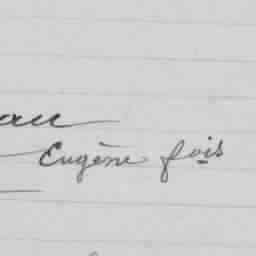 au
Eugène fois